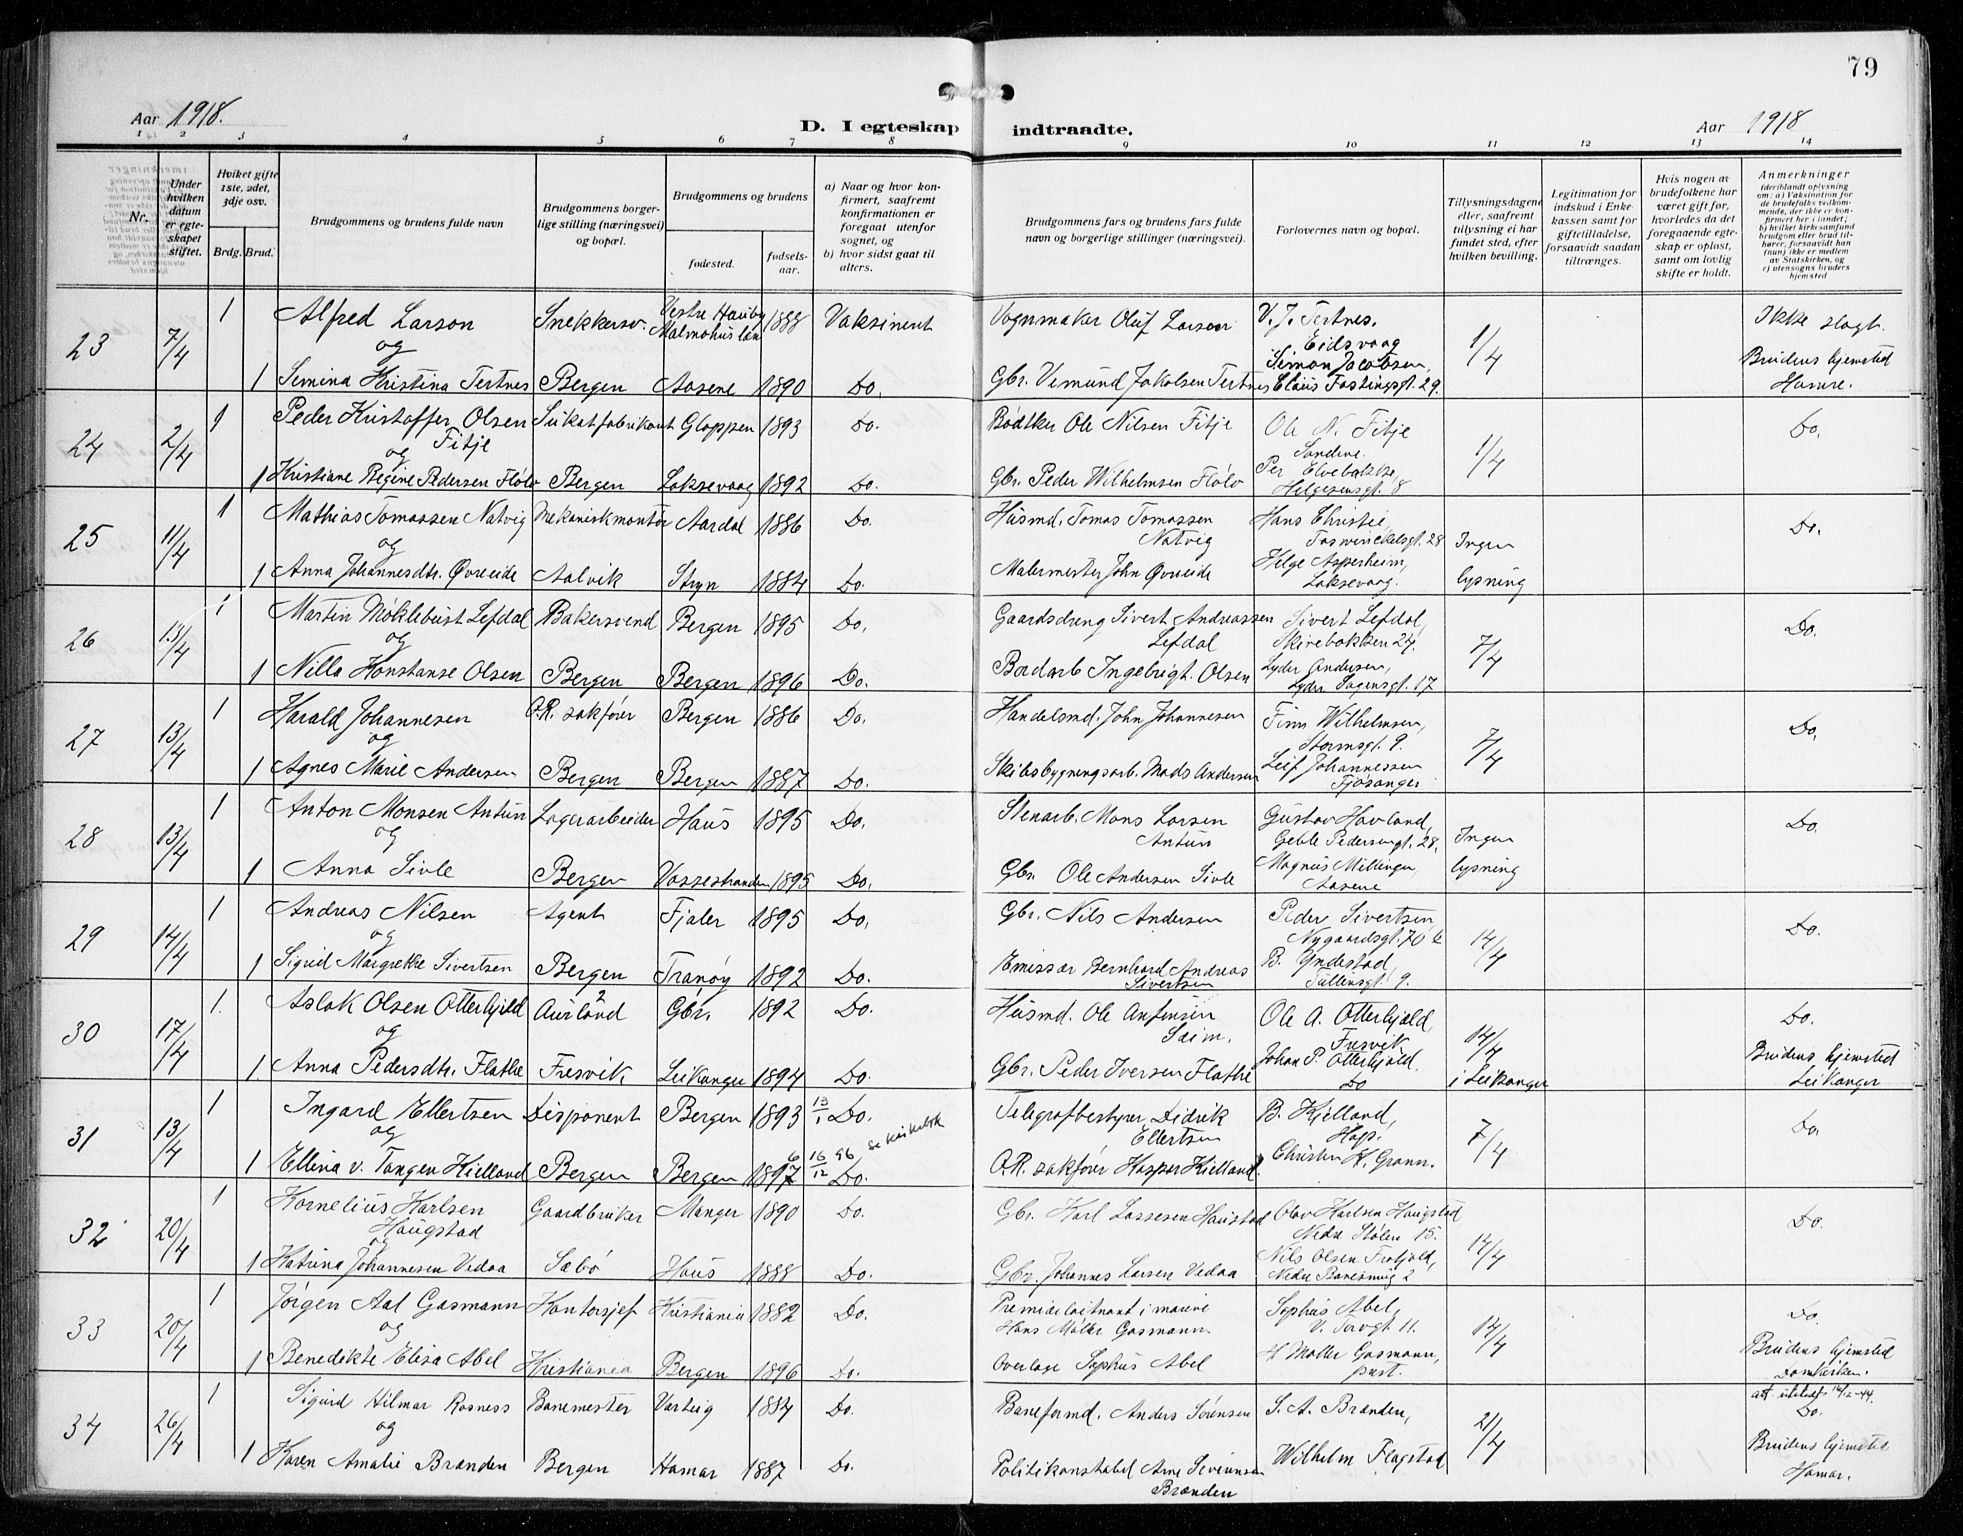 79
Aar 1918.
D. I egteskap indtraadte.
Aar 1918
1 2 3 4 5 6 7 8 9 10 11 12 13 14
Nr.
Under hvilken datum er egteskapet stiftet.
Hvilket gifte 1ste, 2det, 3dje osv.
Brdg. Brud.
Brudgommens og brudens fulde navn
Brudgommens borgerlige stilling (næringsvei) og bopæl.
Brudgommens og brudens
fødested.
fødselsaar.
a) Naar og hvor konfirmert, saafremt konfirmationen er foregaat utenfor sognet, og
b) hvor sidst gaat til alters.
Brudgommens fars og brudens fars fulde navn og borgerlige stillinger (næringsvei).
Forlovernes navn og bopæl.
Tillysningsdagene eller, saafremt tillysning ei har fundet sted, efter hvilken bevilling.
Legitimation for indskud i Enkekassen samt for giftetilladelse, forsaavidt saadan tiltrænges.
Hvis nogen av brudefolkene har været gift før, hvorledes da det foregaaende egteskap er opløst, samt om lovlig skifte er holdt.
Anmerkninger (deriblandt oplysning om: a) Vaksination for de brudefolks vedkommende, der ikke er konfirmert her i landet; b) hvilket kirkesamfund brudgom eller brud tilhører, forsaavidt han (hun) ikke er medlem av Statskirken, og c) utensogns bruders hjemsted
23 7/4 1 Alfred Larson Snekkersv. Vestre Malmøhus län 1888 Vaksinert Vognmaker Oluf Larson V. J. Tertnes, Eidsvaag 1/4 Ikke slagt.
og
1 Semina Kristina Tertnes Bergen Aasene 1890 Do. Gbr. Vemund Jakobsen Tertnes Simon Jacobsen, Claus Fastingsgt. 29. Brudens hjemsted Hamre.
24 2/4 1 Peder Kristoffer Olsen Fitje Gloppen 1893 Do. Bødtker Ole Nilsen Fitje Ole N. Fitje Sandene. 1/4 Do.
og
1 Kristiane Regine Pedersen Flølo Bergen Laksevaag 1892 Do. Gbr. Peder Wilhelmsen Flølo Per Elvebakke, Helgesensgt. 8
25 11/4 1 Mathias Tomassen Natvig Mekaniskmontør Aardal 1886 Do. Husmd. Tomas Tomassen Natvig Hans Christie, Foswinckelsgt. 28 Ingen lysning Do.
og
1 Anna Johannesdtr. Øvreeide Aalvik Stryn 1884 Do. Malermester John Øvreeide Helge Asperheim, Laksevaag.
26 13/4 1 Martin Møklebust Lefdal Bakersvend Bergen 1895 Do. Gaardsdreng Sivert Andreassen Lefdal Sivert Lefdal, Skivebakken 24. 7/4 Do.
og
1 Nilla Konstanse Olsen Bergen Bergen 1896 Do. Bødarb. Ingebrigt Olsen Lyder Andersen, Lyder Sagensgt. 17
27 13/4 1 Harald Johannesen O.R. sakfører Bergen 1886 Do. Handelsmd. John Johannesen Finn Wilhelmsen, Stormsgt. 9. 7/4 Do.
og
1 Agnes Marie Andersen Bergen Bergen 1887 Do. Skibsbygningsarb. Mads Andersen Leif Johannessen Fjøsanger
28 13/4 1 Anton Monsen Antun Lagerarbeider Haus 1895 Do. Stenarb. Mons Larsen Antun Gustav Havland, Geble Pedersensgt. 28. Ingen lysning Do.
og
1 Anna Sivle Bergen Vossestranden 1895 Do. Gbr. Ole Andersen Sivle Magnus Millinger Aasene
29 14/4 1 Andreas Nilsen Agent Fjaler 1895 Do. Gbr. Nils Andersen Peder Sivertsen Nygaardsgt. 70 14/4 Do.
og
1 Sigrid Margrethe Sivertsen Bergen Tranøy 1892 Do. Emissær Bernhard Andreas Sivertsen B. Yndestad, Tullinsgt. 9.
30 17/4 1. Aslak Olsen Otterhjæld Aurland Gbr. 1892 Do. Husmd. Ole Anfinsen Saim. Ole A. Otterhjæld, Fresvik 14/4 Do.
og
1. Anna Pedersdtr. Flathe Fresvik Leikanger 1894 Do. Gbr. Peder Iversen Flathe Johan P. Otterhjæld. Do i Leikanger Brudens hjemsted Leikanger
31 13/4 1 Ingard Ellertsen Disponent Bergen 1893 13/1 Do. Telegrafbestyrer Didrik Ellertsen B. Kielland, Hop. 7/4 Do.
og
1 Ellina v. Tangen Kielland Bergen Bergen 1897 6 16/12 96 Do. O.R. sakfører Kasper Kielland Christen K. Grann.
32 20/4 1 Kornelius Karlsen Haugstad Gaardbruker Manger 1890 Do. Gbr. Karl Lassesen Haustad Olav Karlsen Haugstad Nedre Stølen 15. 14/4 Do.
og
1 Katrina Johannesen Vedaa Sæbø Haus 1888 Do. Gbr. Johannes Larsen Vedaa Nils Olsen
33 20/4 1 Jørgen Aal Gasmann Kontorsjef Kristiania 1882 Do. Premierløitnant i marine Hans Møller Gasmann. Sophus Abel, V. Torvgt. 11. 14/4 Do.
og
1 Benedikte Elisa Abel Kristiania Bergen 1896 Do. Overlæge Sophus Abel H Møller Gasmann, Brudens hjemsted Domkirken.
34 26/4 1 Sigurd Hilmar Rosness Banemester Varteig 1884 Do. Baneformd. Anders Sørensen S. A. Brænden, 21/4 att. utstedt 14/12-44. Do.
og
1 Karen Amalie Brænden Bergen Hamar 1887 Do. Politikonstabel Arne Severinsen Brænden Wilhelm Flagstad Brudens hjemsted Hamar.